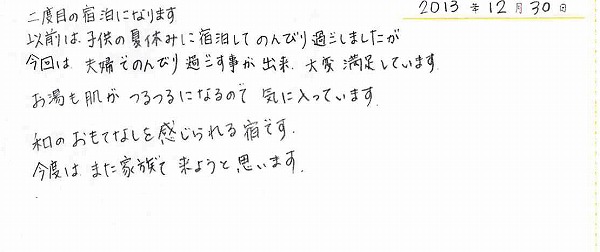 2013年12月30日
二度目の宿泊になります
以前は、子供の夏休みに宿泊してのんびり過ごしましたが
今回は、夫婦でのんびり過ごす事が出来、大変満足しています。
お湯も肌がつるつるになるので気に入っています。
和のおもてなしを感じられる宿です。
今度は、また家族で来ようと思います。